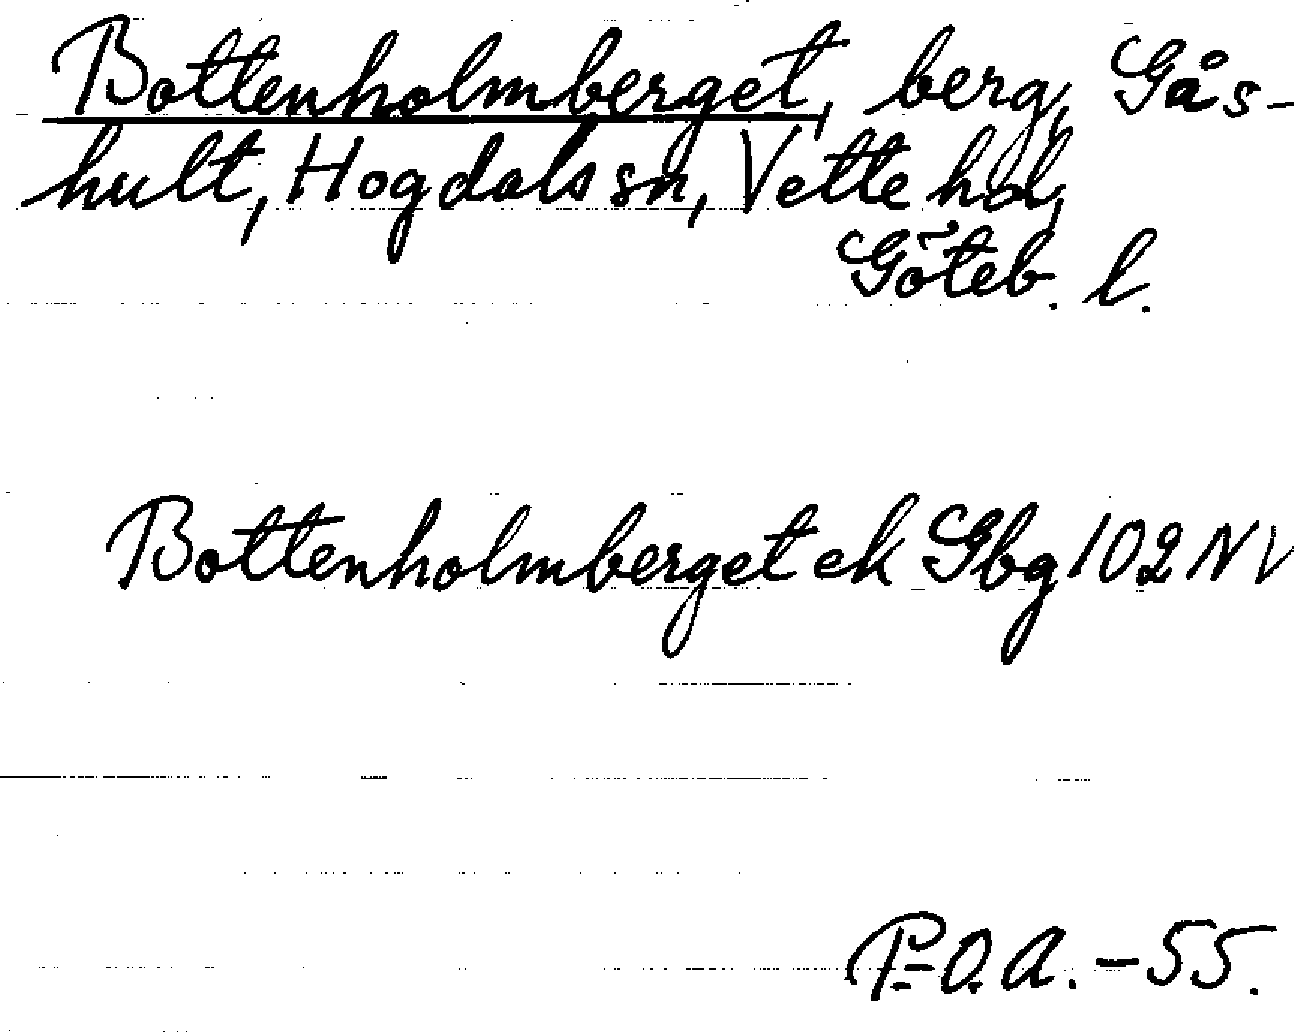 Bottenholmberget, berg, Gås-
hult, Hogdals sn, Vette hd,
Göteb. l.
Bottenholmberget ek Gbg 102 NV
P-O.A. - 55.